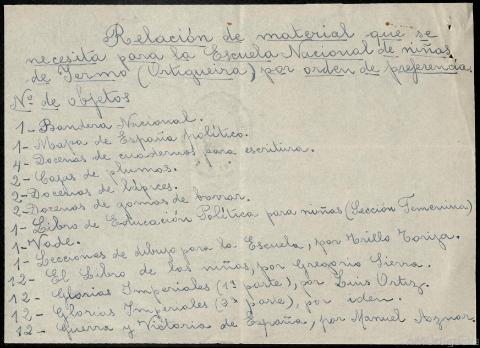 Relación de material que se
necesita para la Escuela Nacional de niñas
de Yermo (Ortigueira) por orden de preferencia.
Nº de objetos
1- Bandera Nacional.
1- Mapa de España político.
4- Docenas de cuadernos para escritura.
2- Cajas de plumas.
2- Docenas de lápices.
2- Docenas de gomas de borrar.
1- Libro de Educación Política para niñas (Sección Femenina)
1- Vade.
1- Lecciones de dibujo para la Escuela, por Trillo Torija.
12- El Libro de las niñas, por Gregorio Sierra.
12- Glorias Imperiales (1ª parte), por Luis Ortiz.
12- Glorias Imperiales (2ª parte), por iden.
12- Guerra y Victoria de España, por Manuel Aznar.